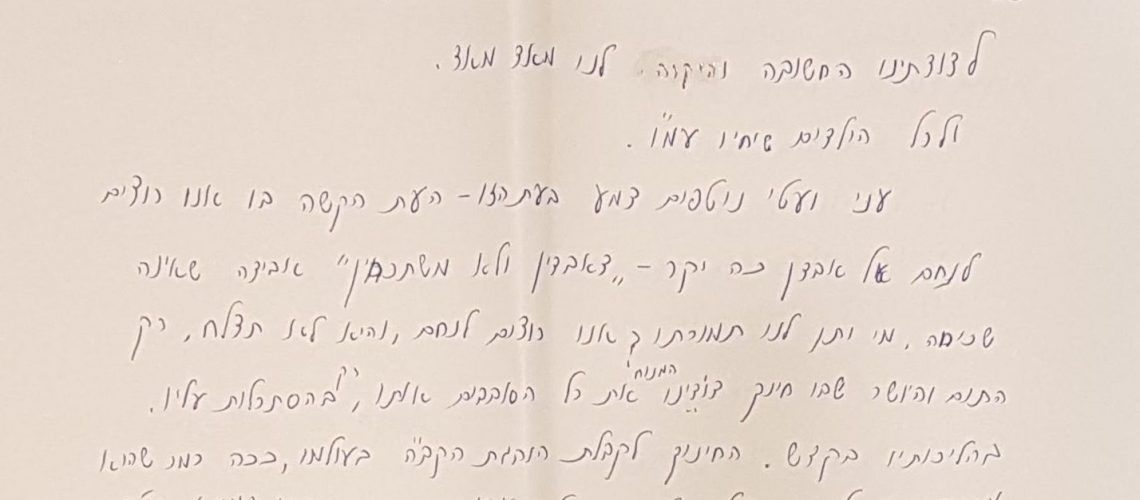 לדודתינו החשובה והיקרה לנו מאד מאד.
ולכל הילדים שיחיו עמו"ש.
עני ועטי נוטפים דמע בעת הזו - העת הקשה בו אנו רוצים
לנחם על אבדן כה יקר - "דאבדין ולא משתכחין" אבידה שאינה
שכיחה, מי יתן לנו תמורתו, אנו רוצים לנחם, והיא לא תצלח, רק
התום והיושר שבו חינך דודינו המנוח את כל הסובבים אותו, רק בהסתכלות עליו.
בהליכותיו בקדש. החינוך לקבלת הנהגת הקב"ה בעולמו, ככה כמו שהוא